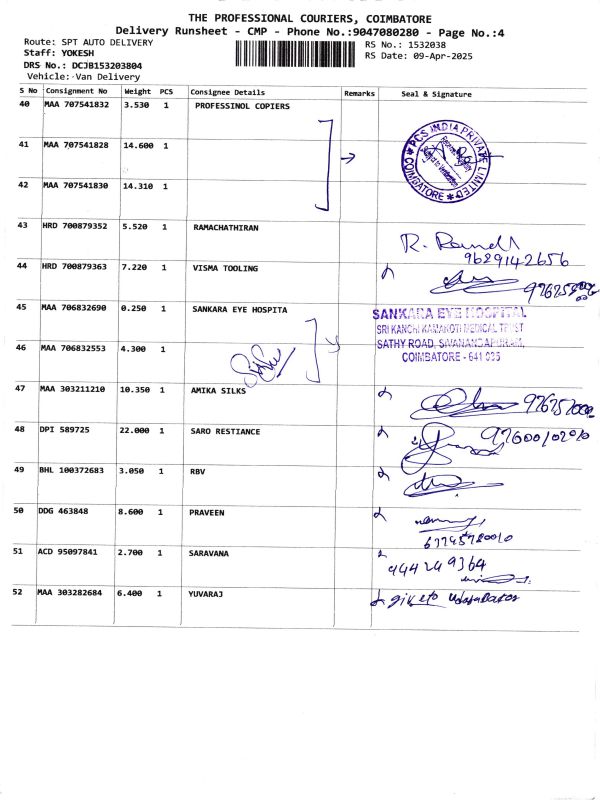 THE PROFESSIONAL COURIERS, COIMBATORE
Delivery Runsheet - CMP - Phone No.:9047080280 - Page No.:4
Route: SPT AUTO DELIVERY
RS No.: 1532038
Staff: YOKESH
RS Date: 09-Apr-2025
DRS No.: DCJB153203804
Vehicle: Van Delivery
S No Consignment No Weight PCS Consignee Details Remarks Seal & Signature
40 MAA 707541832 3.530 1 PROFESSINOL COPIERS
41 MAA 707541828 14.600 1
PCS INDIA PRIVATE LIMITED COIMBATORE
42 MAA 707541830 14.310 1
43 HRD 700879352 5.520 1 RAMACHATHIRAN
R.
9629142656
44 HRD 700879363 7.220 1 VISMA TOOLING
45 MAA 706832690 0.250 1 SANKARA EYE HOSPITA
SANKARA EYE HOSPITAL
SRI KANCHI KAMAKOTI MEDICAL TRUST
SATHY ROAD, SIVANANDAPURAM,
COIMBATORE - 641 035
46 MAA 706832553 4.300 1
47 MAA 303211210 10.350 1 AMIKA SILKS
48 DPI 589725 22.000 1 SARO RESTIANCE
49 BHL 100372683 3.050 1 RBV
50 DDG 463848 8.600 1 PRAVEEN
51 ACD 95097841 2.700 1 SARAVANA
52 MAA 303282684 6.400 1 YUVARAJ